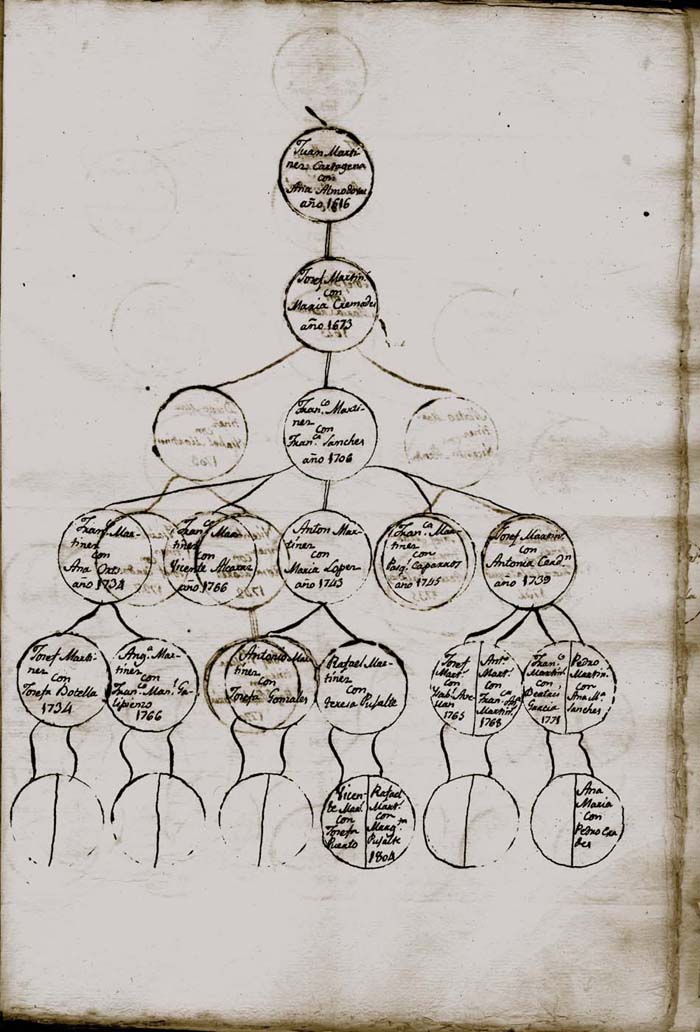 Juan Marti-
nez Cartagena
con
Ana Almodovar
año 1616
Josef Martin.ˢ
con
Maria Cremades
año 1673
Fran.ᶜᵒ Marti-
nez
con
Fran.ᶜᵃ Sanches
año 1706
Fran.ᶜᵒ Mar-
tinez
con
Ana Orts
año 1734
Fran.ᶜᵃ Mar-
tinez
con
Vicente Alcaraz
año 1766
Anton Mar-
tinez
con
Maria Lopez
año 1743
Fran.ᶜᵃ Mar-
tinez
con
Pasq. Caparros
año 1745
Josef Martin.ˢ
con
Antonia
año 1739
Josef Marti-
nez
con
Josefa Botella
1734
Ang.ᵃ Mar-
tinez
con
Fran.ᶜᵒ Man.ˡ Ga-
lipienzo
1766
Antonio Mar-
tinez
con
Josefa Gonzales
Rafael Mar-
tinez
con
Teresa Pujalte
Josef
Mart.ˢ
con
1765
Ant.ᵒ
Mart.ˢ
con
Fran.ᶜᵃ
Martin.ˢ
1768
Fran.ᶜᵒ
Martin.ˢ
con
Beatris
Garcia
1771
Pedro
Martin.ˢ
con
Ana M.ᵃ
Sanches
Vicen-
te Mar.
con
Josefa
Puerto
Rafael
Mart.ˢ
con
Marg.ᵗᵃ
Pujalte
1804
Ana
Maria
con
Pedro